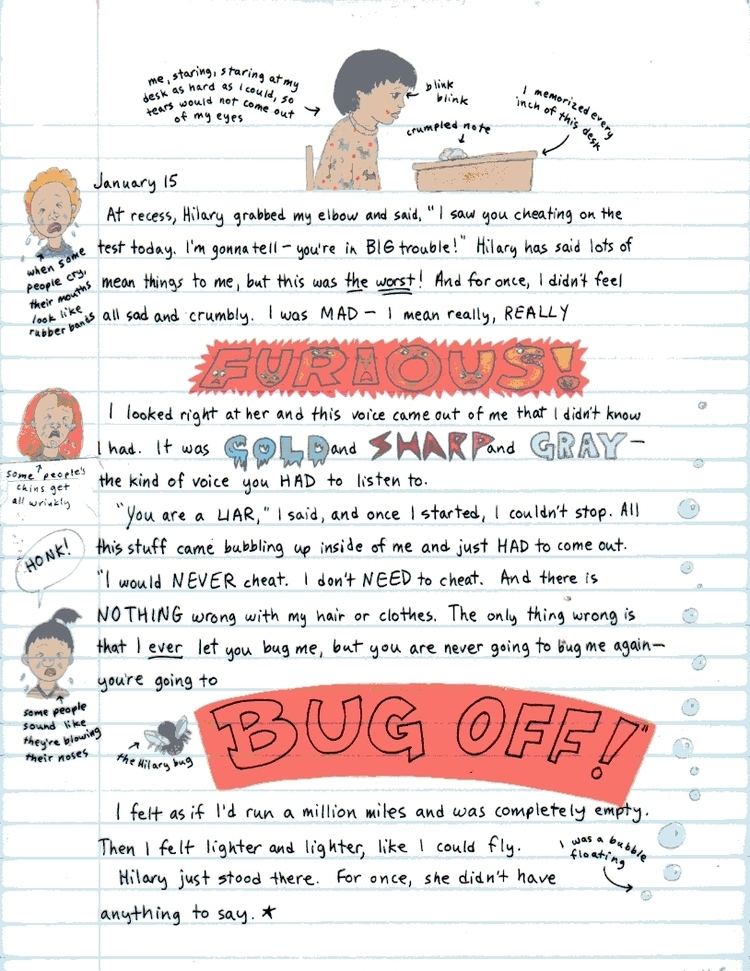 me, staring, staring at my
desk as hard as I could, so
tears would not come out
of my eyes
blink
blink
crumpled note
I memorized every
inch of this desk
January 15
At recess, Hilary grabbed my elbow and said, "I saw you cheating on the
test today. I'm gonna tell – you're in BIG trouble!" Hilary has said lots of
mean things to me, but this was the worst! And for once, I didn't feel
all sad and crumbly. I was MAD – I mean really, REALLY
FURIOUS!
when some
people cry,
their mouths
look like
rubber bands
I looked right at her and this voice came out of me that I didn't know
I had. It was COLD and SHARP and GRAY –
the kind of voice you HAD to listen to.
some people's
chins get
all wrinkly
"You are a LIAR," I said, and once I started, I couldn't stop. All
this stuff came bubbling up inside of me and just HAD to come out.
"I would NEVER cheat. I don't NEED to cheat. And there is
NOTHING wrong with my hair or clothes. The only thing wrong is
that I ever let you bug me, but you are never going to bug me again –
you're going to
HONK!
some people
sound like
they're blowing
their noses
the Hilary bug
BUG OFF!"
I felt as if I'd run a million miles and was completely empty.
Then I felt lighter and lighter, like I could fly.
I was a bubble
floating
Hilary just stood there. For once, she didn't have
anything to say. ★